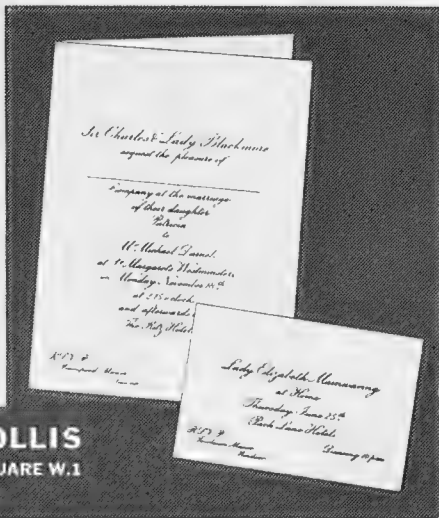 Sir Charles & Lady Blackmore
request the pleasure of
Company at the marriage
of their daughter
Patricia
to
Mr Michael Darnel,
at St Margarets Westminster
on Monday, November 14th
at 2.15 o'clock
and afterwards
The Ritz Hotel.
R.S.V.P.
House
Lady Elizabeth Mannering
at Home
Thursday, June 25th
Park Lane Hotel.
R.S.V.P.
Dancing 10 p.m.
OLLIS
UARE W.1